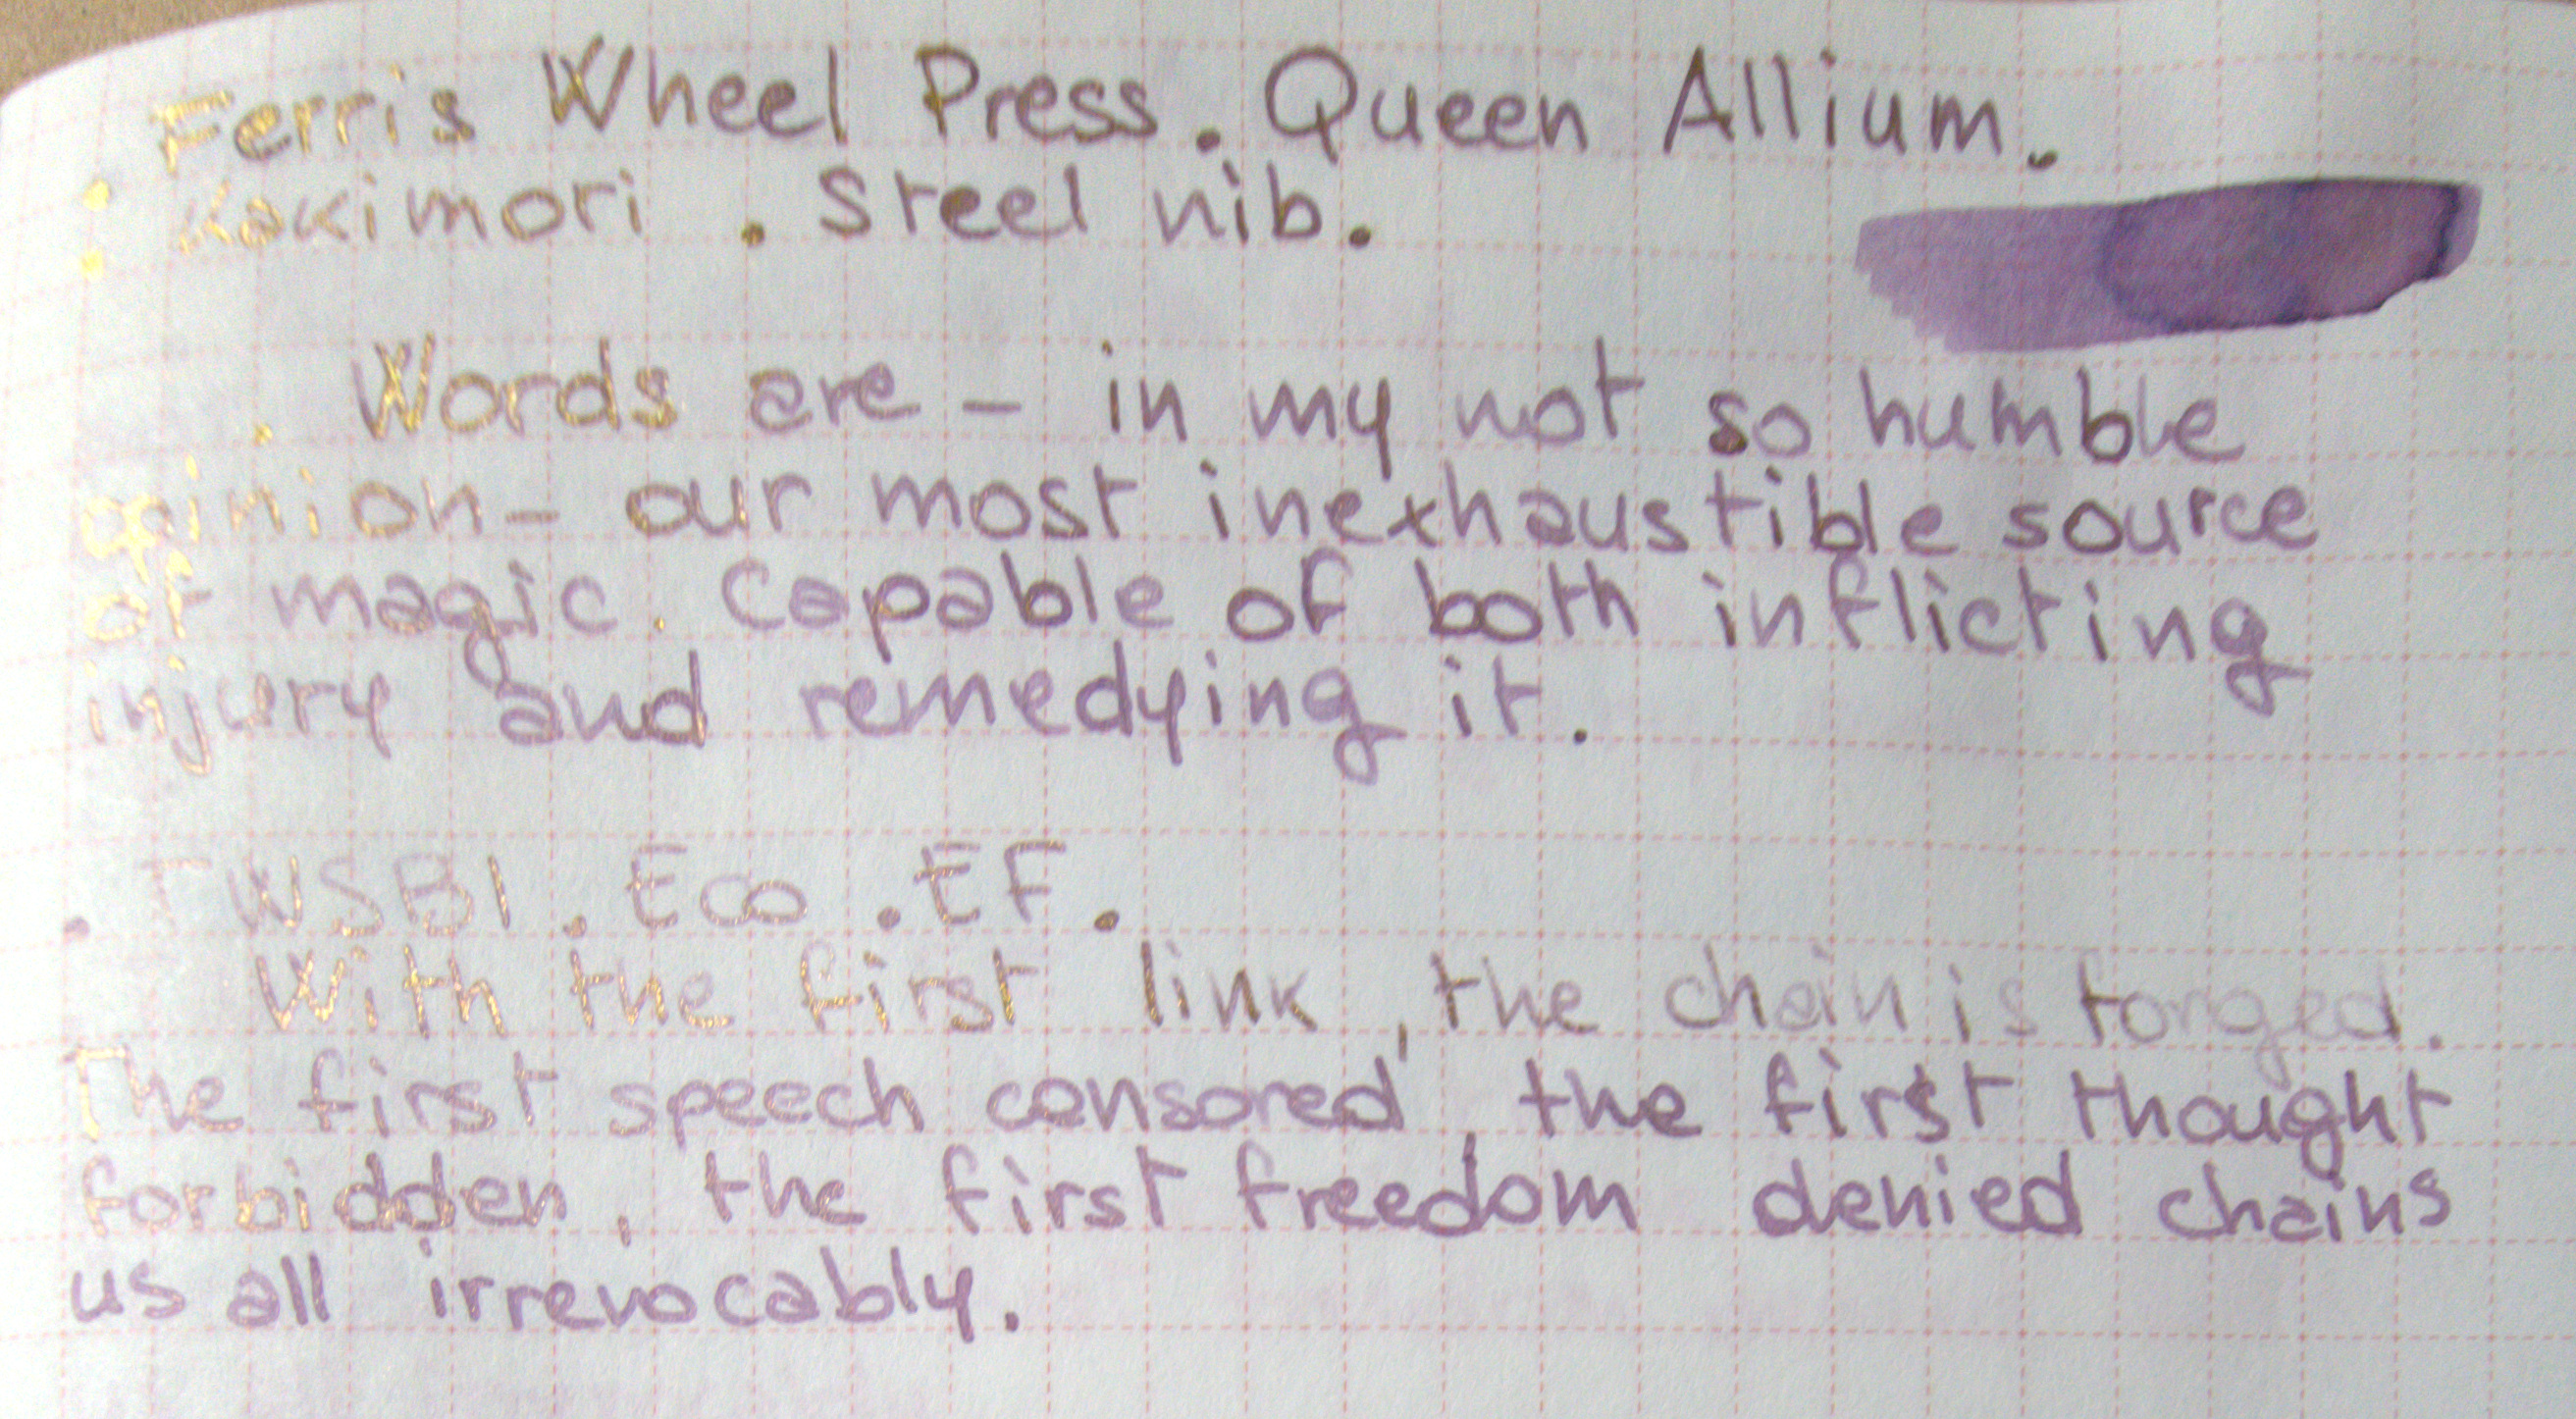 Ferris Wheel Press. Queen Allium.
: Kakimori . Steel nib.
. Words are - in my not so humble
opinion - our most inexhaustible source
of magic. Capable of both inflicting
injury and remedying it.
. TWSBI . Eco . EF.
With the first link, the chain is forged.
The first speech censored, the first thought
forbidden, the first freedom denied chains
us all irrevocably.